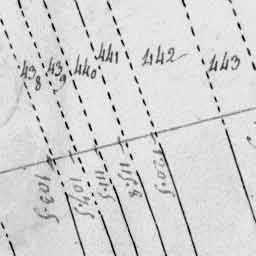 438
439
440
441
442
443
103.5
107.5
111.5
115.8
120.5